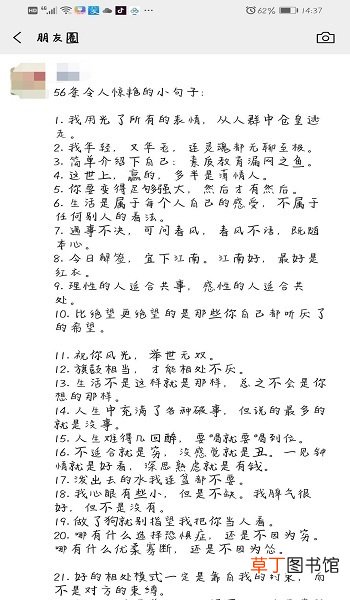 HD 46 62% 14:37
朋友圈
56条令人惊艳的小句子：
1. 我用光了所有的表情，从人群中仓皇逃
走。
2. 我年轻，又年老，连灵魂都无聊至极。
3. 简单介绍下自己：素质教育漏网之鱼。
4. 这世上，赢的，多半是薄情人。
5. 你要变得足够强大，然后才有然后。
6. 生活是属于每个人自己的感受，不属于
任何别人的看法。
7. 遇事不决，可问春风，春风不语，既随
本心。
8. 今日解签，宜下江南。江南好，最好是
红衣。
9. 理性的人适合共事，感性的人适合共
处。
10. 比绝望更绝望的是那些你自己都听厌了
的希望。
11. 祝你风光，举世无双。
12. 旗鼓相当，才能相处不厌。
13. 生活不是这样就是那样，总之不会是你
想的那样。
14. 人生中充满了各种破事，但说的最多的
就是没事。
15. 人生难得几回醉，要喝就要喝到位。
16. 不适合就是穷，没感觉就是丑。一见钟
情就是好看，深思熟虑就是有钱。
17. 泼出去的水我连盆都不要。
18. 我心眼有些小，但是不缺。我脾气很
好，但不是没有。
19. 做了狗就别指望我把你当人看。
20. 哪有什么选择恐惧症，还不是因为穷。
哪有什么优柔寡断，还不是因为怂。
21. 好的相处模式一定是靠自我的约束，而
不是对方的束缚。
草丁图书馆